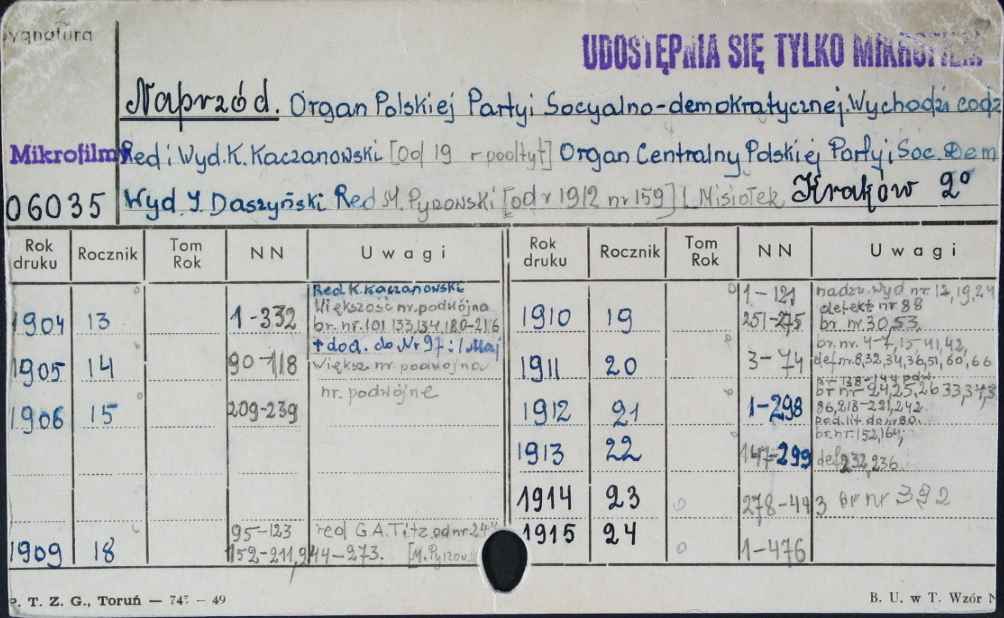 ygnatura
UDOSTĘPNIA SIĘ TYLKO MIKROFILM
Naprzód. Organ Polskiej Partyi Socyalno-demokratycznej. Wychodzi codz
Mikrofilmy Red i Wyd. K. Kaczanowski [od 19 r podtyt] Organ Centralny Polskiej Partyi Soc. Dem
06035 Wyd. I. Daszyński Red M. Pyzowski [od r 1912 nr 159] L Misiołek Kraków 2°
Rok druku Rocznik Tom Rok NN Uwagi Rok druku Rocznik Tom Rok NN Uwagi
1904 13 1-332 Red. K. Kaczanowski
Większość nr. podwójna
br. nr. 101 133,134, 180-216
+ dod. do Nr 97: 1 Maj
1905 14 90-118 Większ. nr. podwójna
1906 15 209-239 nr. podwójne
1909 18 95-123 red G.A. Titz od nr 24
152-211, 244-273. [M. Pyzow
1910 19 1-121 nadzw. wyd nr. 12, 19, 24
251-275 defekt nr 88
br nr. 30, 53.
1911 20 3-74 br. nr. 4-7, 15-41, 42,
def nr. 8, 32, 34, 36, 51, 60, 66
1912 21 1-298 br nr. 24, 25, 26 33, 37, 8
86, 218-221, 242.
1913 22 147-299 br. nr. 152, 164,
def 232, 236.
1914 23 278-443 br nr 392
1915 24 1-476
P. T. Z. G., Toruń — 747 — 49
B. U. w T. Wzór N